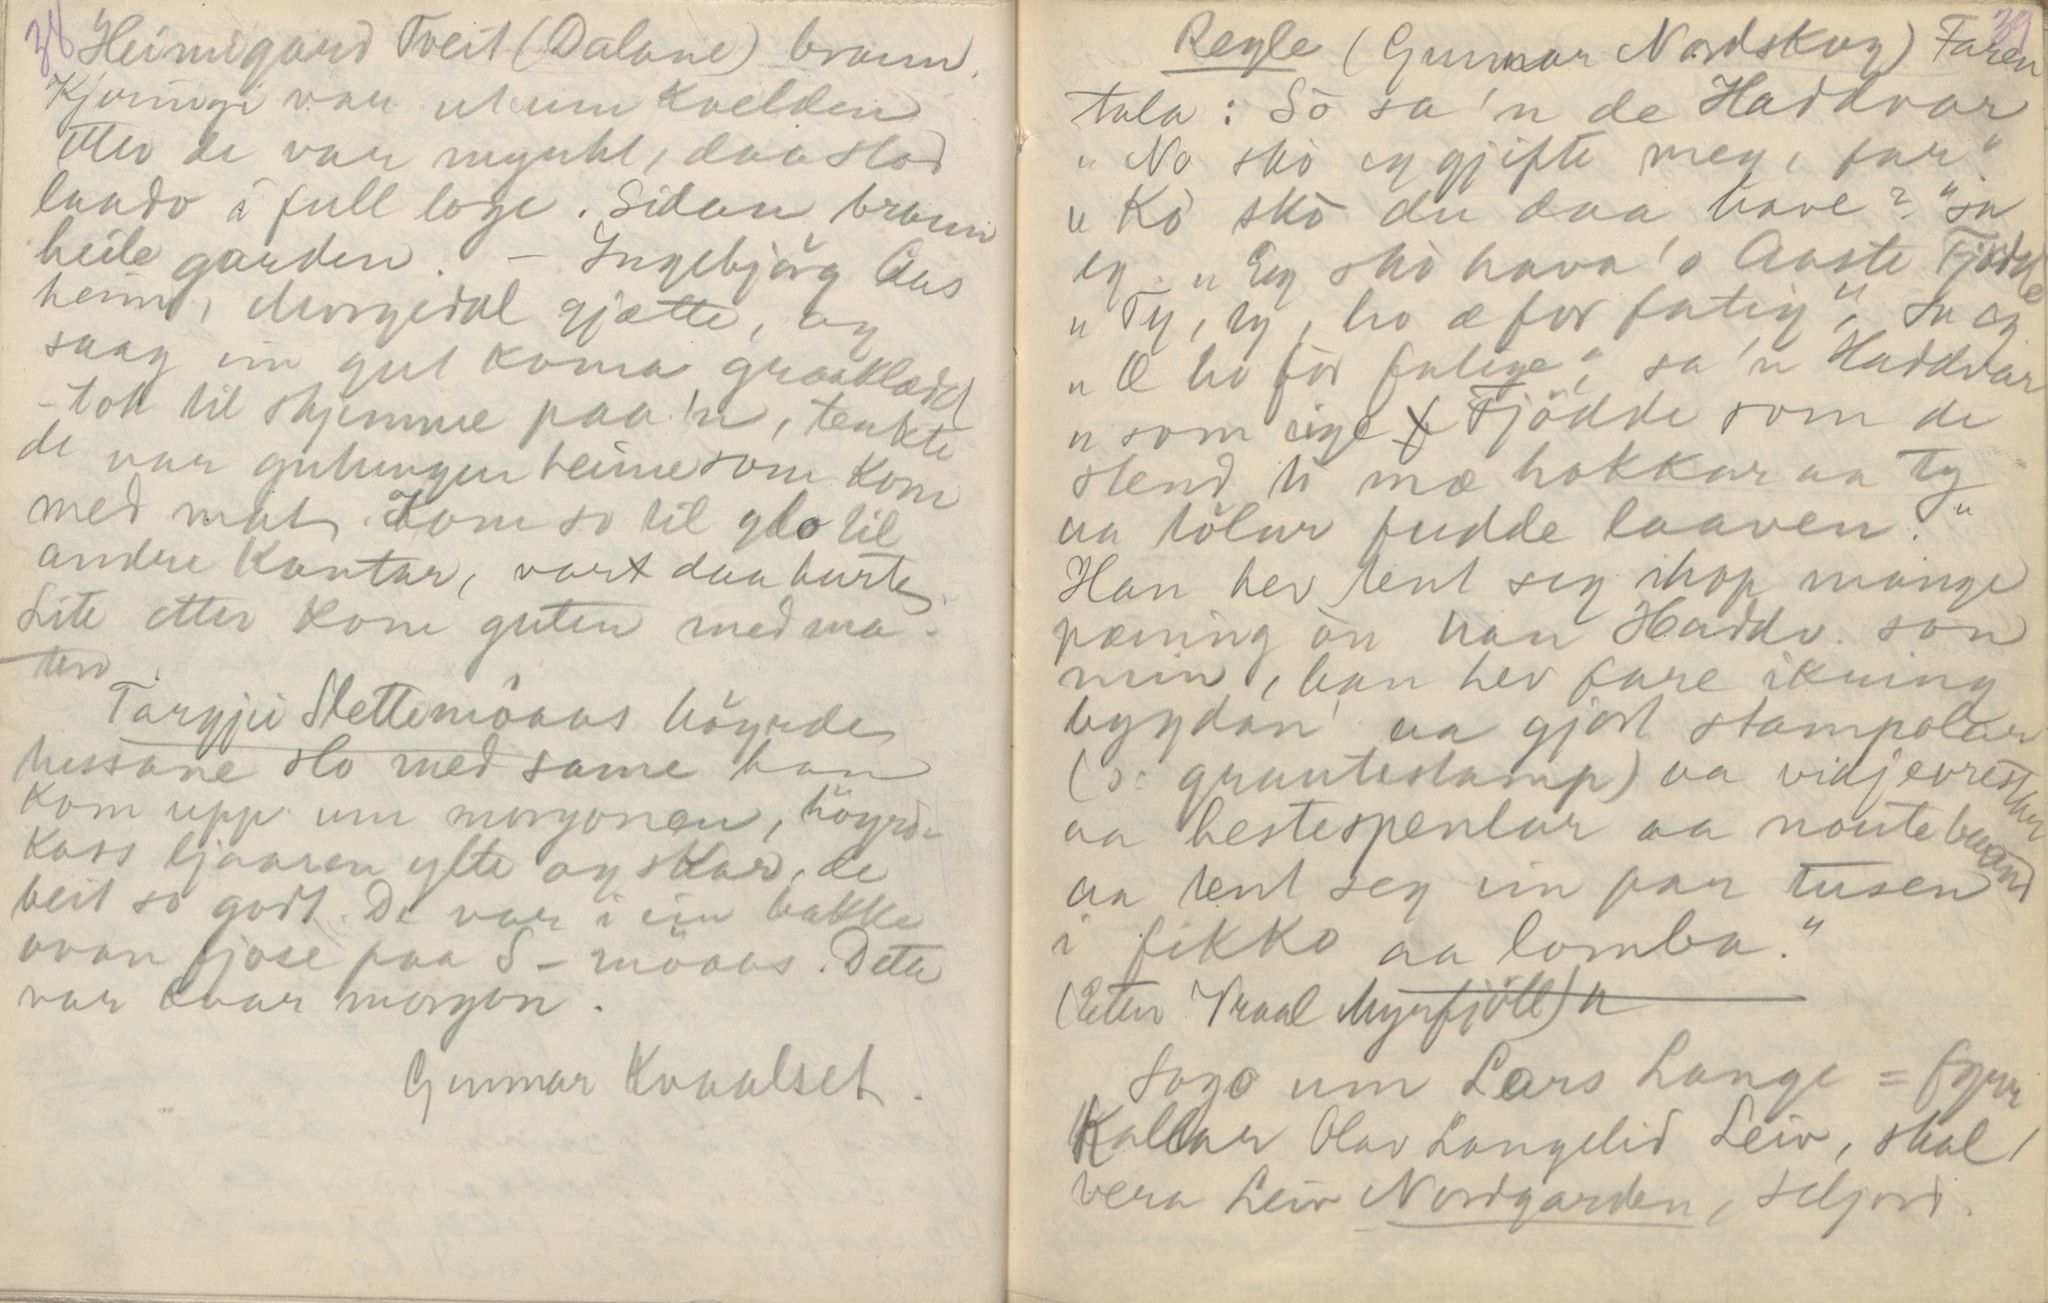 38
Heimigard Tveit (Dalane) brann.
Kjeringi var ut um kvelden
etter de var myrkt, daa stod
laado i full loge. Sidan brann
heile garden. – Ingebjörg Aas
heim, Morgedal gjætte, og
saag ein gut koma graaklædd
- tok til skjemme paa 'n, tenkte
de var gutungen heime som kom
med mat. Kom so til glo til
andre kantar, vart daa burte.
Lite etter kom guten med ma-
ten.
Targjei Slettemöaas höyrde
tussane slo med same han
kom upp um morgonen, höyrde
kass ljaaren ylte og skar, de
beit so godt. De var i ein bakke
ovan fjose paa S-möaas. Dette
var kvar morgon.
Gunnar Kvaalset.
39
Regle (Gunnar Nordskog) Faren
tala: So sa 'n de Haddvar
"No sko eg gjifte meg, far"
"Ko sko du daa have?" sa
eg. "Eg sko hava 'o Aaste Fjödde
"Ty, ty, ho æ for fatig", sa eg
"Æ ho for fatige", sa 'n Haddvar
"som eige Fjödde som de
stend ti mæ hokkar aa ty
aa tölar fudde laaven."
Han hev tent seg ihop mange
pæning òn han Haddv. son
min, han hev fare ikring
bygdan aa gjort stampolar
(ɔ: grautestamp) aa vidjevrestar
aa hestespentar aa noutebaand
aa tent seg ein par tusen
i fikko aa lomba."
(Etter Vraal Myrfjöll)
Sogo um Lars Lange =
Kallar Olav Langelid Leiv, skal
vera Leiv Nordgarden, Seljord.